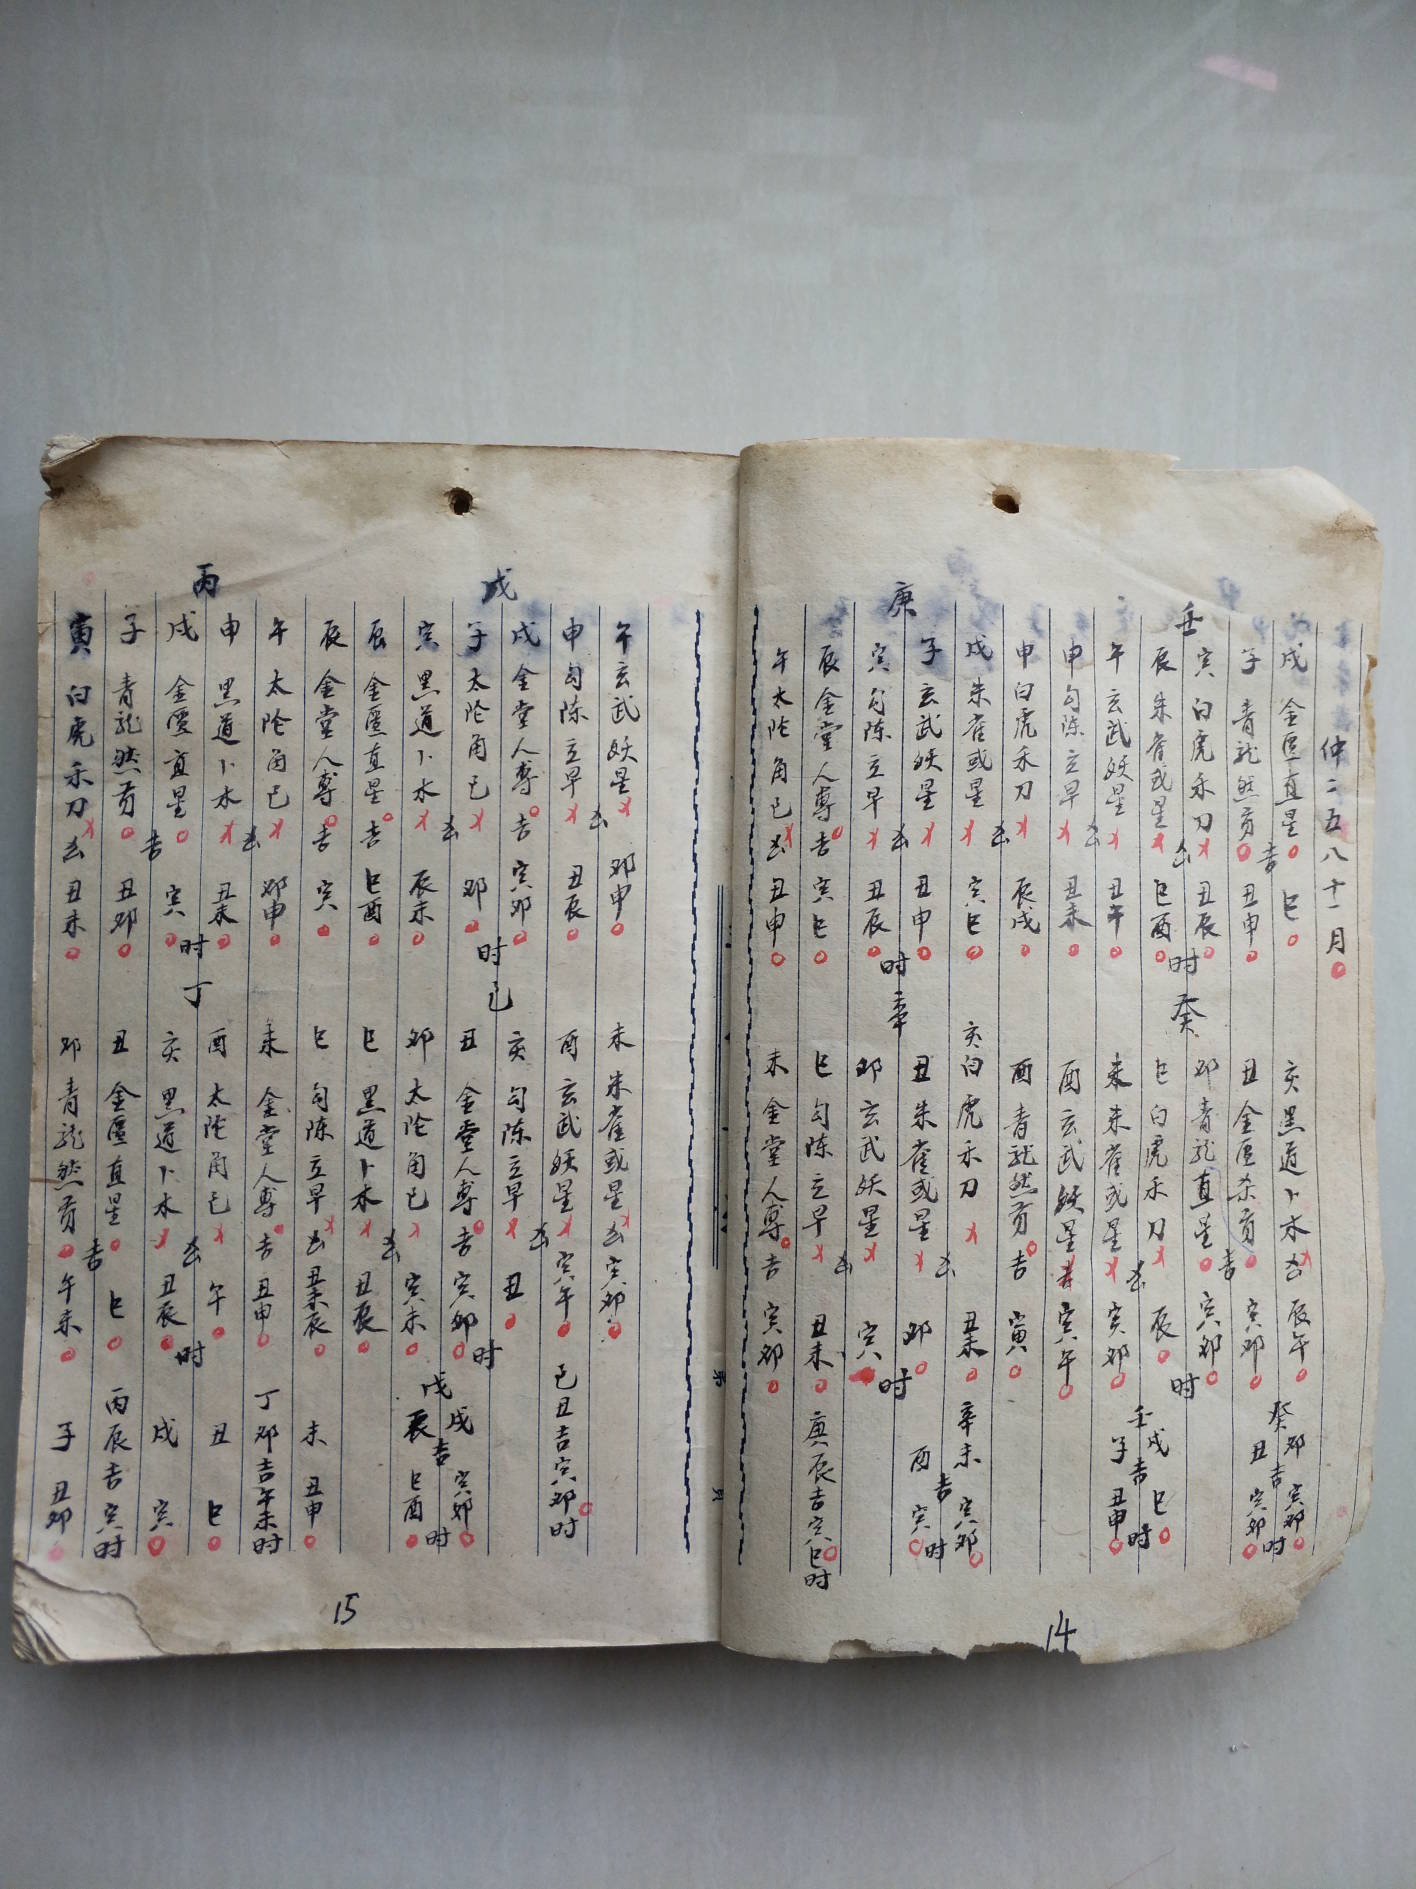 仲二五八十一月
壬
戌 金匮直星 吉 巳
子 青龙然贡 丑申
寅 白虎禾刀 凶 丑辰
辰 朱雀或星 巳酉
时
午 玄武妖星 凶 丑午
申 勾陈立早 丑未
申 白虎禾刀 凶 辰戌
戌 朱雀或星 寅巳
庚
子 玄武妖星 凶 丑申
寅 勾陈立早 丑辰
时
辰 金堂人專 吉 寅巳
午 太陀角己 凶 丑申
癸
亥 黑道卜木 凶 辰午
丑 金匮杀贡 吉 寅卯
卯 青龙直星 寅卯
巳 白虎禾刀 凶 辰
时
未 朱雀或星 寅卯
酉 玄武妖星 寅午
酉 青龙然贡 吉 寅
亥 白虎禾刀 丑未
辛
丑 朱雀或星 凶 卯
卯 玄武妖星 凶 寅
时
巳 勾陈立早 丑未
未 金堂人專 吉 寅卯
癸卯 寅卯
丑 吉 寅卯 时
壬戌 巳
子 吉 丑申 时
辛未 寅卯
酉 吉 寅 时
庚辰 吉 寅巳时
14
戊
午 玄武妖星 凶 卯申
申 勾陈立早 丑辰
戌 金堂人專 吉 寅卯
子 太陀角己 凶 卯
时
寅 黑道卜木 辰未
辰 金匮直星 吉 巳酉
辰 金堂人專 吉 寅
午 太陀角己 凶 卯申
丙
申 黑道卜木 丑未
戌 金匮直星 吉 寅
时
子 青龙然贡 丑卯
寅 白虎禾刀 凶 丑未
己
未 朱雀或星 凶 寅卯
酉 玄武妖星 凶 寅午
亥 勾陈立早 丑
丑 金堂人專 吉 寅卯
时
卯 太陀角己 凶 寅未
巳 黑道卜木 丑辰
巳 勾陈立早 凶 丑未辰
未 金堂人專 吉 丑申
丁
酉 太陀角己 凶 午
亥 黑道卜木 丑辰
时
丑 金匮直星 吉 巳
卯 青龙然贡 午未
己丑 吉 寅卯时
戊戌 寅卯
辰 吉 巳酉 时
未 丑申
丁卯 吉 午未时
丑 巳
戌 寅
丙辰 吉 寅时
子 丑卯
15